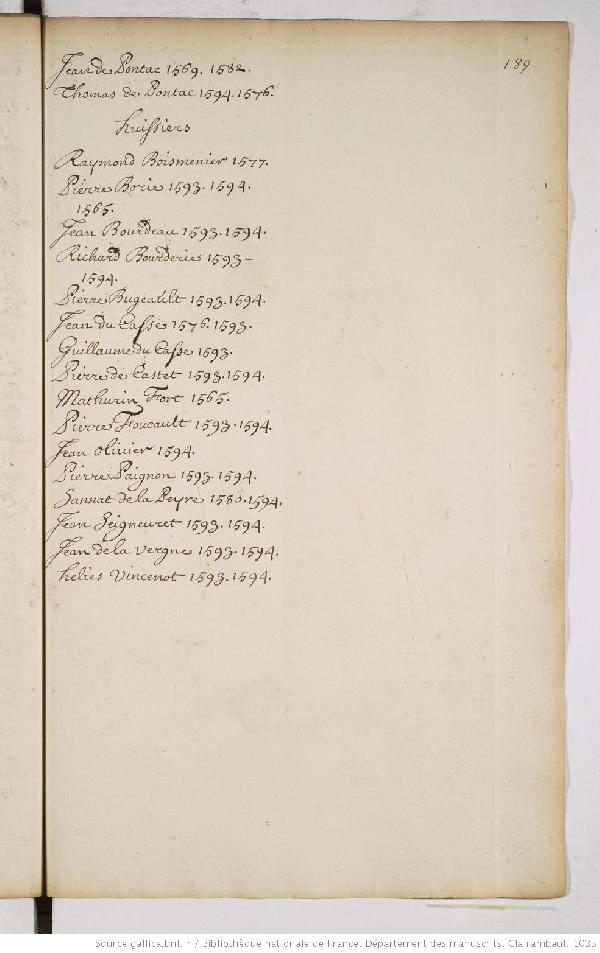 189
Jean de Pontac 1569. 1582.
Thomas de Pontac 1594. 1576.
huissiers
Raymond Boismenier 1577.
Pierre Borie 1593. 1594.
1565.
Jean Bourdeau 1593. 1594.
Richard Bourderie 1593-
1594.
Pierre Bugeault 1593. 1594.
Jean du Casse 1576. 1593.
Guillaume du Casse 1593.
Pierre de Castet 1593. 1594.
Mathurin Fort 1565.
Pierre Foucault 1593. 1594.
Jean Olivier 1594.
Pierre Paignon 1593. 1594.
de la Peyre 1580. 1594.
Jean Seigneuret 1593. 1594.
Jean de la Vergne 1593. 1594.
helies Vincenot 1593. 1594.
Source gallica.bnf.fr / Bibliothèque nationale de France. Département des manuscrits. Clairambault 1035